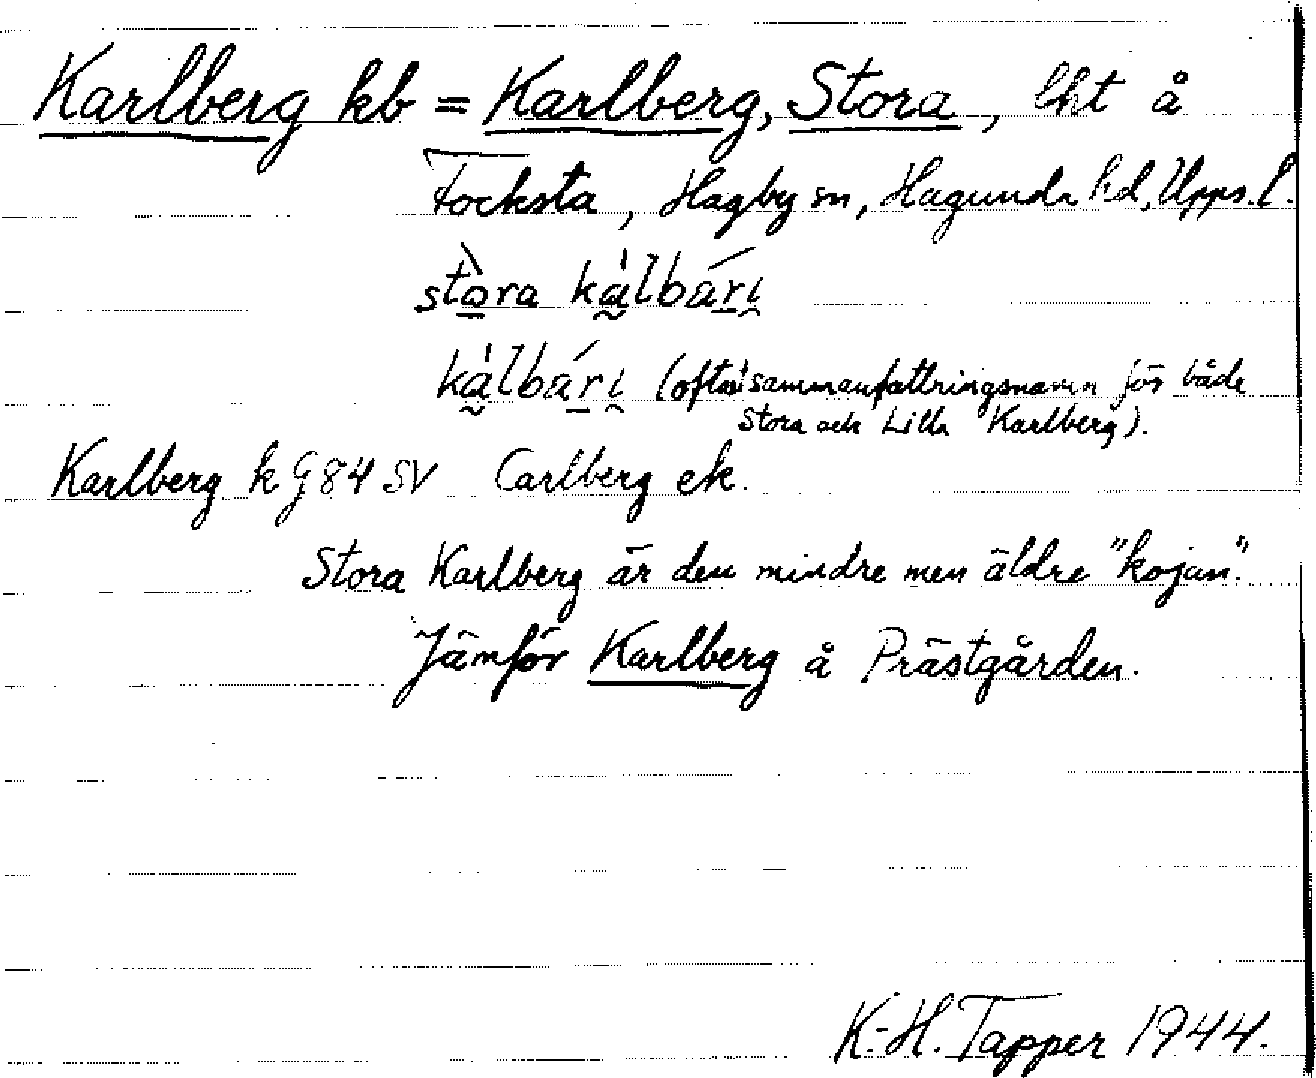 Karlberg kb = Karlberg, Stora, lht å
Focksta, Hagby sn, Hagunda hd, Upps. l.
stòra kàlbári
kàlbári (ofta sammanfattningsnamn för både
Stora och Lilla Karlberg).
Karlberg k G 84 SV Carlberg ek.
Stora Karlberg är den mindre men äldre "kojan".
Jämför Karlberg å Prästgården.
K.-H. Tapper 1944.